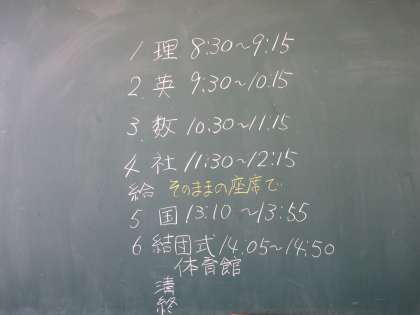 1 理 8:30~9:15
2. 英 9:30~10:15
3. 数 10.30~11.15
4 社 11:30~12:15
給 そのままの座席で
5 国 13:10~13:55
6 結団式 14.05~14:50
体育館
清
終